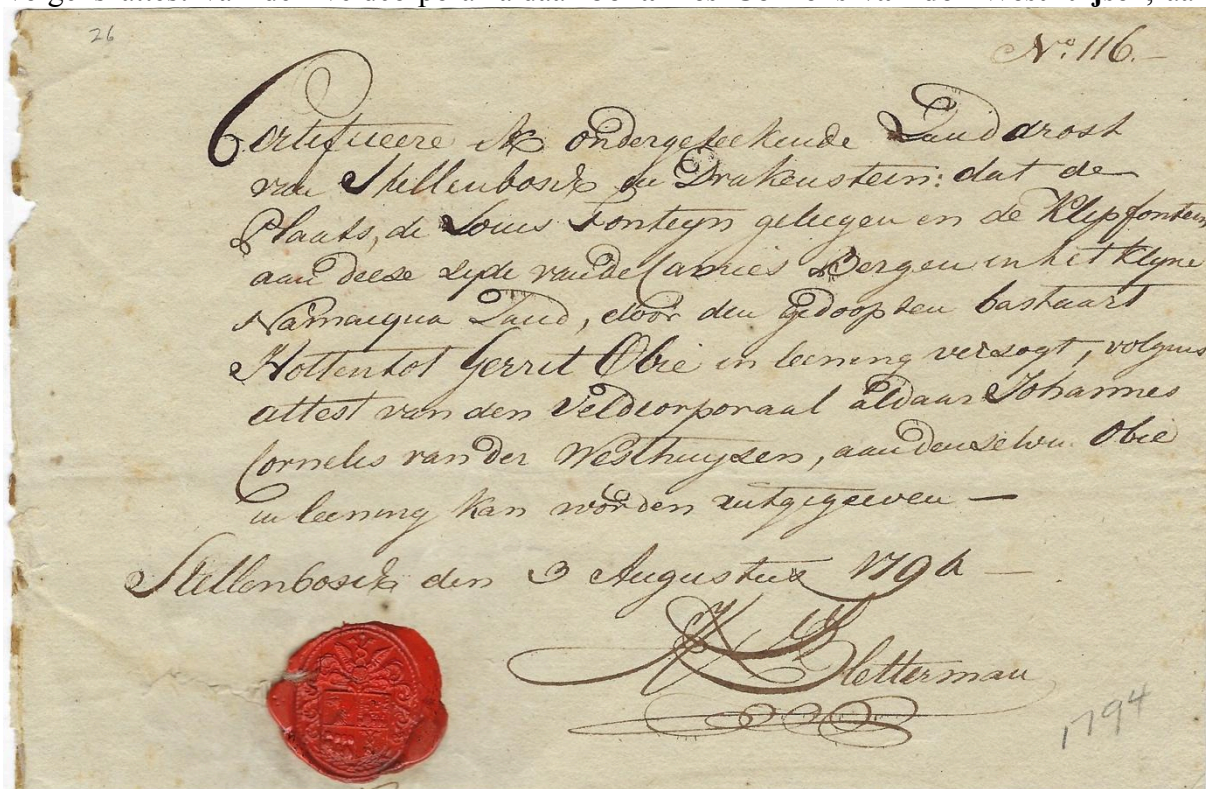 26
N.o 116.—
Certificeere ik ondergeteekende Landdrost
van Stellenbosch en Drakenstein: dat de
Plaats, de Louis Fonteyn geleegen en de Klipfontein
aan deese zyde van de Camies Bergen in het Klyne
Namacqua Land, door den gedoopten bastaart
Hottentot Gerrit Obie in leening versogt, volgens
attest van den Veldcorporaal aldaar Johannes
Cornelis van der Westhuyzen, aan denselven Obie
in leening kan worden uitgegeeven —
Stellenbosch den 3 Augustus 1794 —
Bletterman
1794